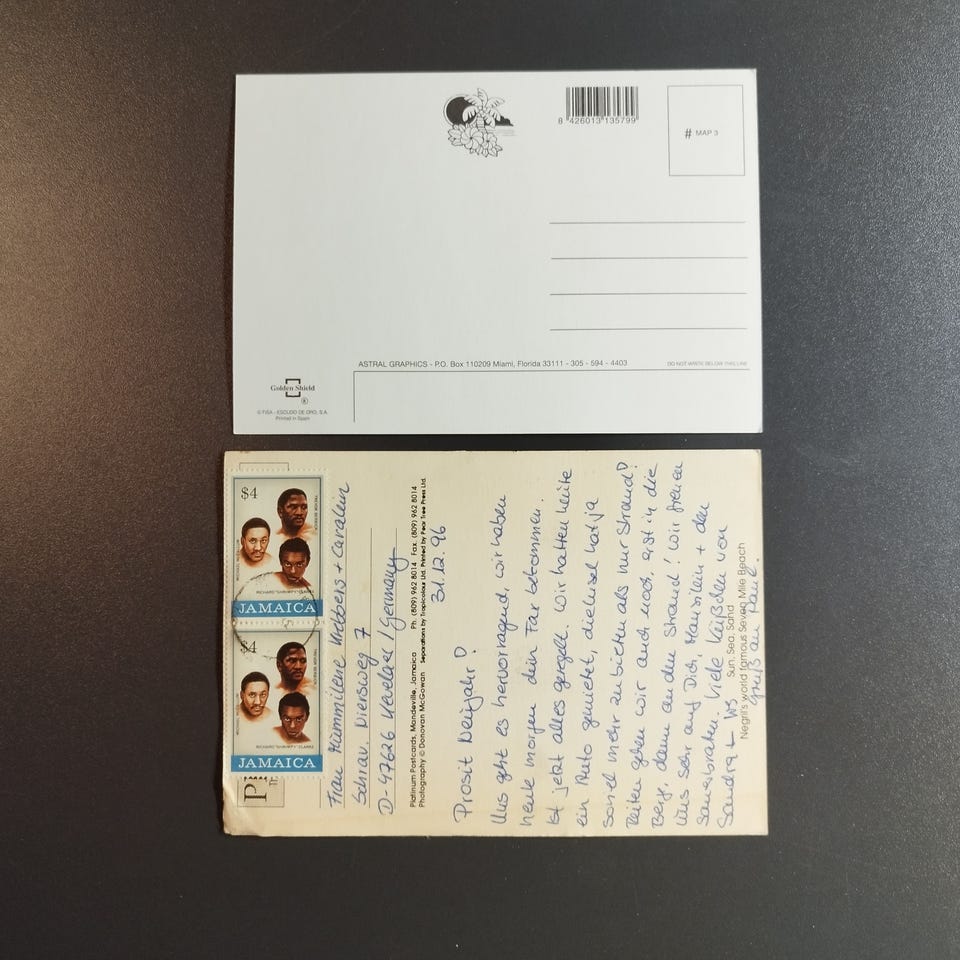 8 426013 135799
# MAP 3
ASTRAL GRAPHICS - P.O. Box 110209 Miami, Florida 33111 - 305 - 594 - 4403
DO NOT WRITE BELOW THIS LINE
Golden Shield
®
© FISA - ESCUDO DE ORO, S.A.
Printed in Spain
$4
RICHARD "SHRIMPY" CLARKE
JAMAICA
$4
RICHARD "SHRIMPY" CLARKE
JAMAICA
Frau + Carolein
7
D-47626 Kevelaer / Germany
Platinum Postcards, Mandeville, Jamaica Ph. (809) 962 8014 Fax. (809) 962 8014
Photography © Donovan McGowan Separations by Tropicolour Ltd. Printed by Pear Tree Press Ltd.
31.12.96
Prosit Neujahr!
Uns geht es hervorragend, wir haben
heute morgen dein Fax bekommen.
Ist jetzt alles geregelt. Wir hatten heute
ein Auto gemietet, die Insel hat ja
soviel mehr zu bieten als nur Strand!
gehen wir auch noch erst in die
Berge, dann an den Strand! Wir freuen
uns sehr auf Dich, + den
Sauerbraten. Viele Küßchen von
Sandra +
Sun, Sea, Sand
Negril's world famous Seven Mile Beach
Gruß an